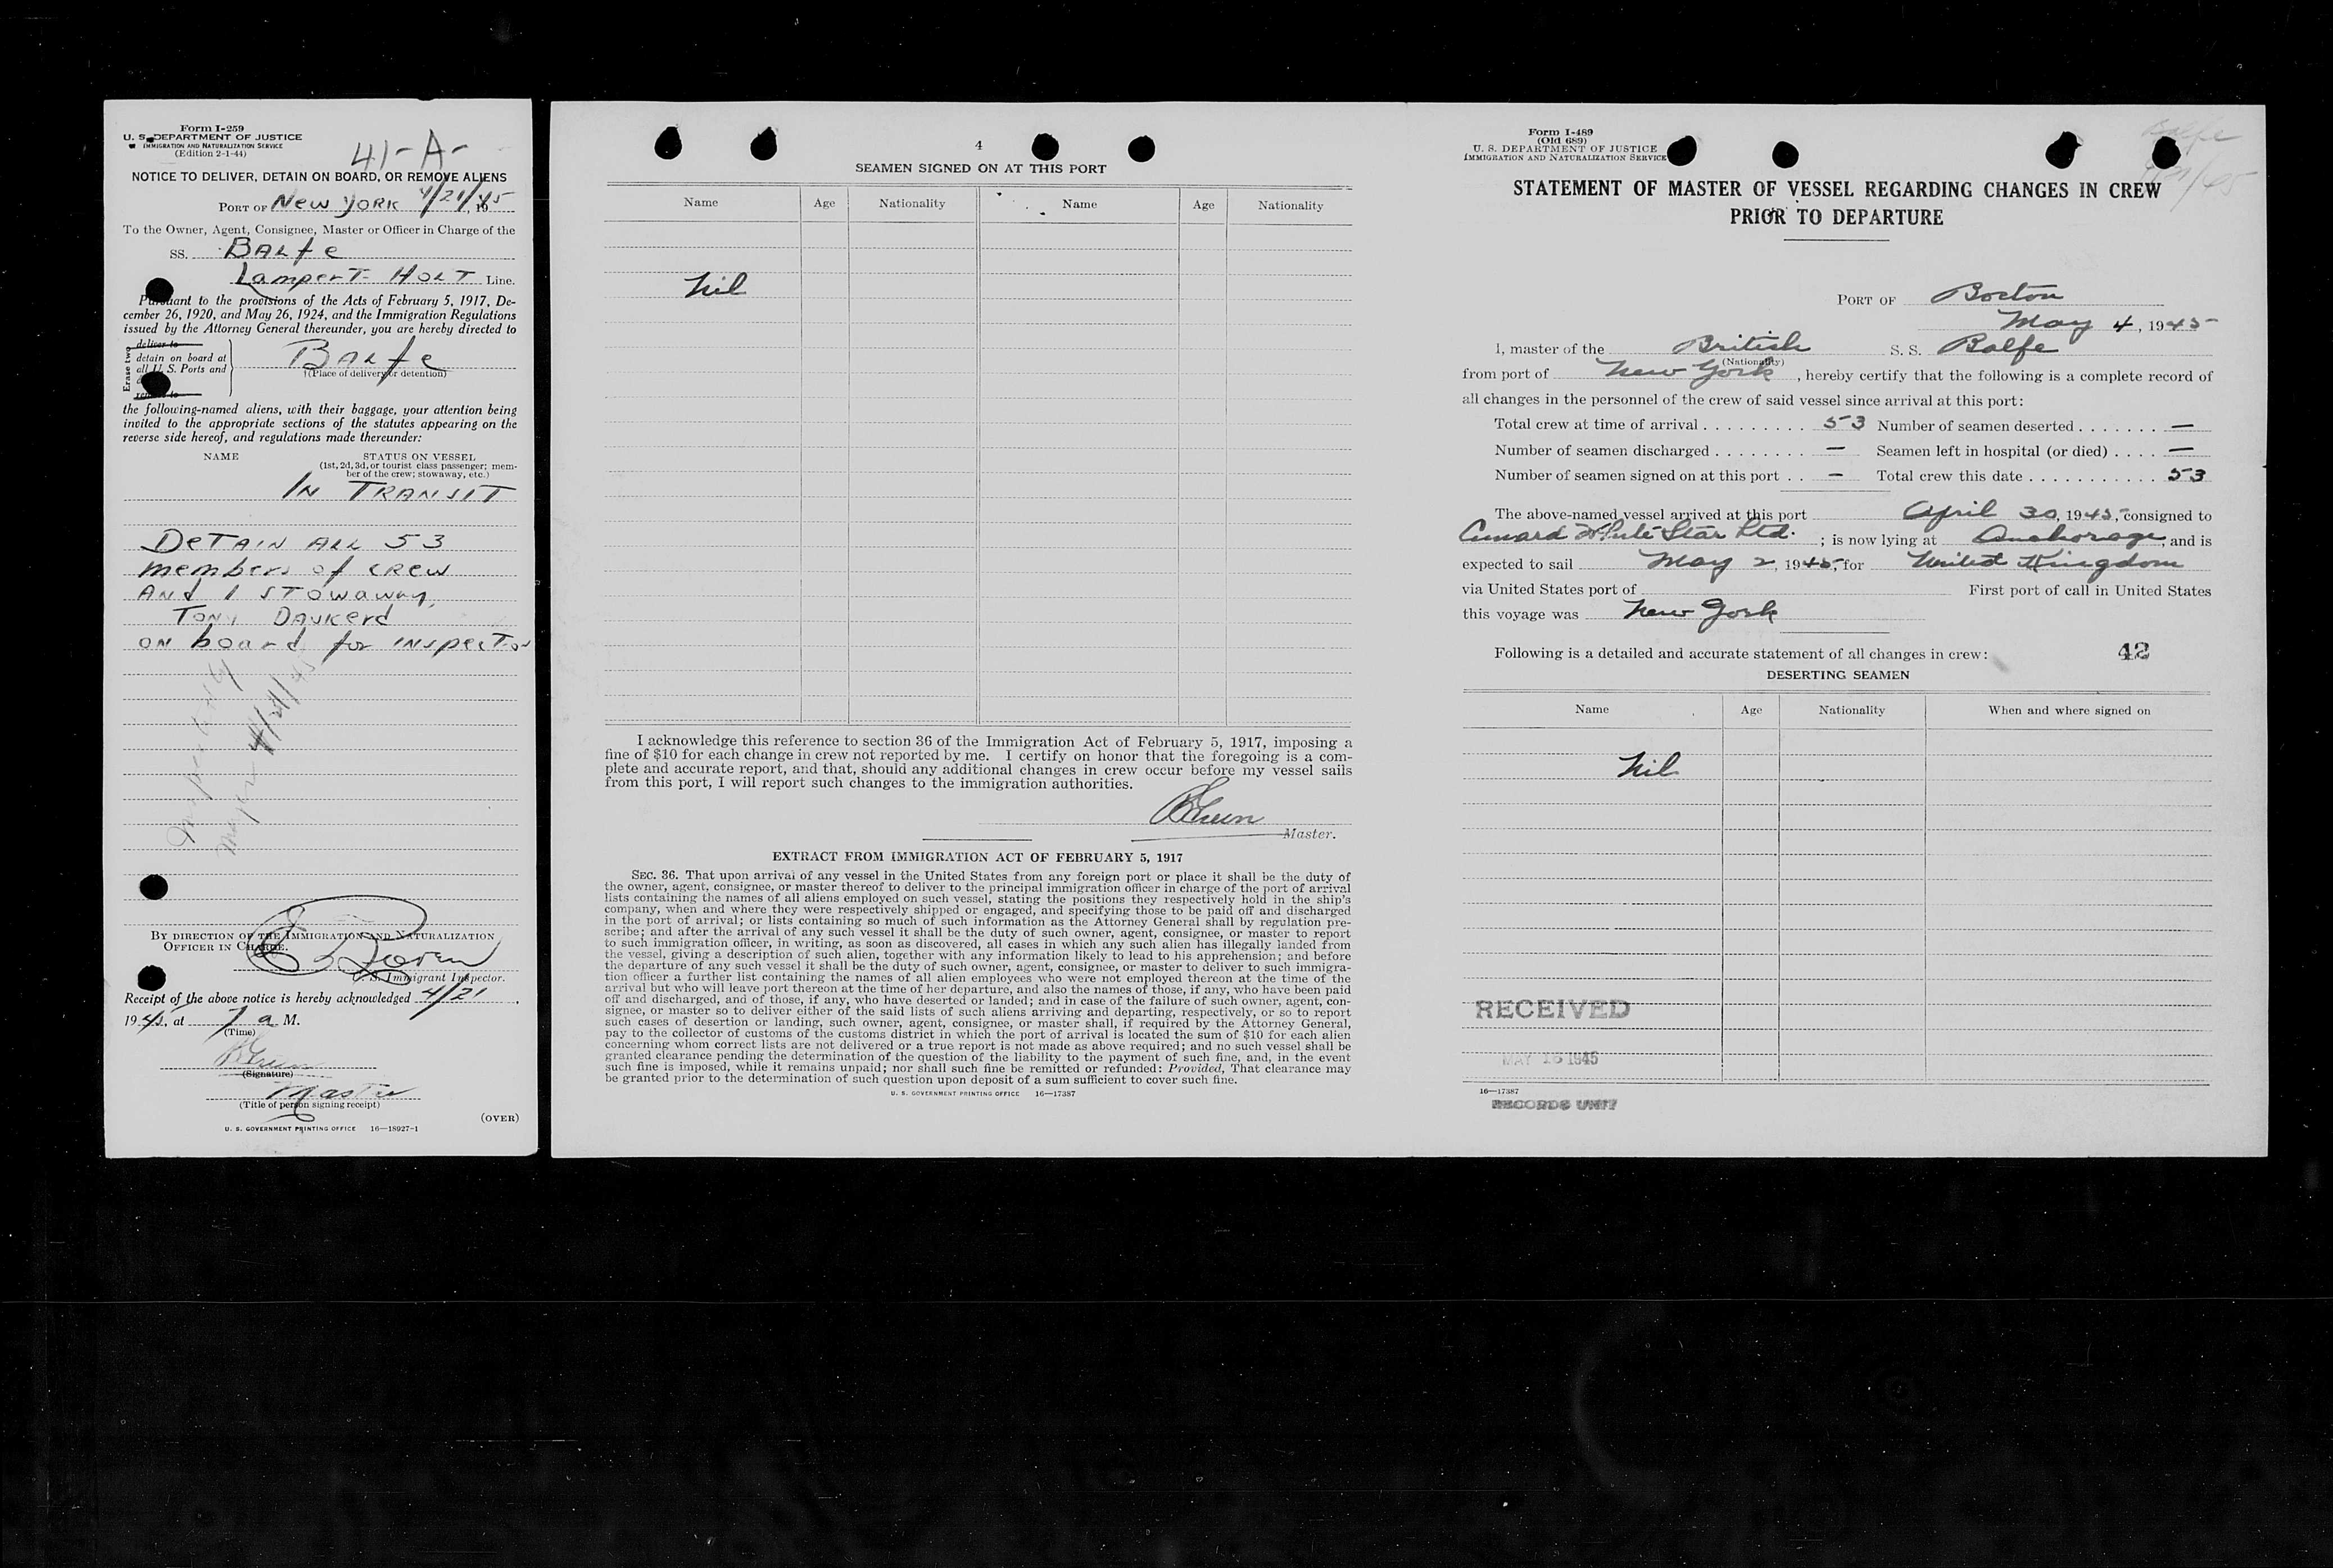 Form I-259
U. S. DEPARTMENT OF JUSTICE
IMMIGRATION AND NATURALIZATION SERVICE
(Edition 2-1-44)
41-A-
NOTICE TO DELIVER, DETAIN ON BOARD, OR REMOVE ALIENS
PORT OF New York 4/21/45, 19
To the Owner, Agent, Consignee, Master or Officer in Charge of the
SS. Balfe
Lampert Holt Line.
Pursuant to the provisions of the Acts of February 5, 1917, De-
cember 26, 1920, and May 26, 1924, and the Immigration Regulations
issued by the Attorney General thereunder, you are hereby directed to
Erase two
deliver to
detain on board at
all U. S. Ports and
Balfe
(Place of delivery or detention)
the following-named aliens, with their baggage, your attention being
invited to the appropriate sections of the statutes appearing on the
reverse side hereof, and regulations made thereunder:
NAME STATUS ON VESSEL
(1st, 2d, 3d, or tourist class passenger; mem-
ber of the crew; stowaway, etc.)
In Transit
Detain all 53
members of crew
And 1 Stowaway,
Tony Daukerd
on board for inspector
4/21/45
BY DIRECTION OF THE IMMIGRATION AND NATURALIZATION
OFFICER IN CHARGE.
U. S. Immigrant Inspector.
Receipt of the above notice is hereby acknowledged 4/21,
1945, at 7 a M.
(Time)
(Signature)
Master
(Title of person signing receipt)
(OVER)
U. S. GOVERNMENT PRINTING OFFICE 16—18927-1
4
SEAMEN SIGNED ON AT THIS PORT
Name Age Nationality Name Age Nationality
Nil
I acknowledge this reference to section 36 of the Immigration Act of February 5, 1917, imposing a
fine of $10 for each change in crew not reported by me. I certify on honor that the foregoing is a com-
plete and accurate report, and that, should any additional changes in crew occur before my vessel sails
from this port, I will report such changes to the immigration authorities.
Master.
EXTRACT FROM IMMIGRATION ACT OF FEBRUARY 5, 1917
SEC. 36. That upon arrival of any vessel in the United States from any foreign port or place it shall be the duty of
the owner, agent, consignee, or master thereof to deliver to the principal immigration officer in charge of the port of arrival
lists containing the names of all aliens employed on such vessel, stating the positions they respectively hold in the ship's
company, when and where they were respectively shipped or engaged, and specifying those to be paid off and discharged
in the port of arrival; or lists containing so much of such information as the Attorney General shall by regulation pre-
scribe; and after the arrival of any such vessel it shall be the duty of such owner, agent, consignee, or master to report
to such immigration officer, in writing, as soon as discovered, all cases in which any such alien has illegally landed from
the vessel, giving a description of such alien, together with any information likely to lead to his apprehension; and before
the departure of any such vessel it shall be the duty of such owner, agent, consignee, or master to deliver to such immigra-
tion officer a further list containing the names of all alien employees who were not employed thereon at the time of the
arrival but who will leave port thereon at the time of her departure, and also the names of those, if any, who have been paid
off and discharged, and of those, if any, who have deserted or landed; and in case of the failure of such owner, agent, con-
signee, or master so to deliver either of the said lists of such aliens arriving and departing, respectively, or so to report
such cases of desertion or landing, such owner, agent, consignee, or master shall, if required by the Attorney General,
pay to the collector of customs of the customs district in which the port of arrival is located the sum of $10 for each alien
concerning whom correct lists are not delivered or a true report is not made as above required; and no such vessel shall be
granted clearance pending the determination of the question of the liability to the payment of such fine, and, in the event
such fine is imposed, while it remains unpaid; nor shall such fine be remitted or refunded: Provided, That clearance may
be granted prior to the determination of such question upon deposit of a sum sufficient to cover such fine.
U. S. GOVERNMENT PRINTING OFFICE 16—17387
Form I-489
(Old 689)
U. S. DEPARTMENT OF JUSTICE
IMMIGRATION AND NATURALIZATION SERVICE
Balfe
STATEMENT OF MASTER OF VESSEL REGARDING CHANGES IN CREW
PRIOR TO DEPARTURE
PORT OF Boston
May 4, 1945
I, master of the British S. S. Balfe
(Nationality)
from port of New York, hereby certify that the following is a complete record of
all changes in the personnel of the crew of said vessel since arrival at this port:
Total crew at time of arrival . . . . . . . . . 53 Number of seamen deserted . . . . . . . —
Number of seamen discharged . . . . . . . . — Seamen left in hospital (or died) . . . . —
Number of seamen signed on at this port . . — Total crew this date . . . . . . . . . . . 53
The above-named vessel arrived at this port April 30, 1945, consigned to
Cunard White Star Ltd. ; is now lying at Anchorage, and is
expected to sail May 2, 1945, for United Kingdom
via United States port of First port of call in United States
this voyage was New York
Following is a detailed and accurate statement of all changes in crew: 42
DESERTING SEAMEN
Name Age Nationality When and where signed on
Nil
RECEIVED
MAY 16 1945
16—17387
RECORDS UNIT